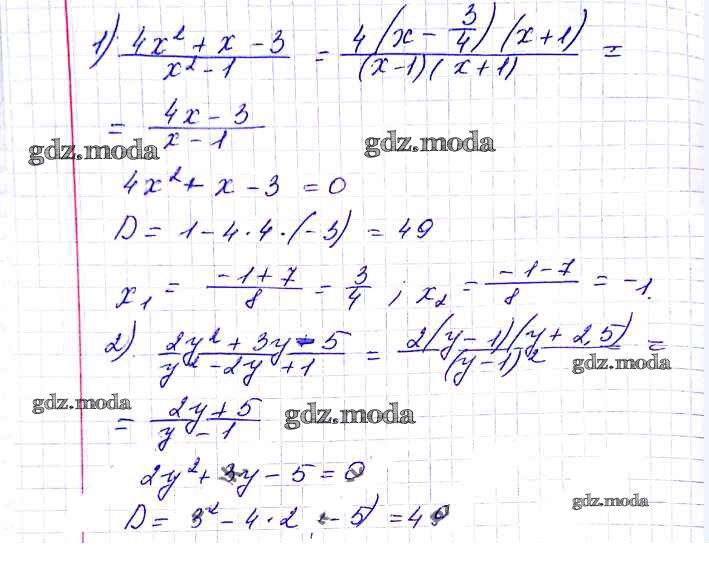 1) (4x² + x - 3)/(x² - 1) = 4(x - 3/4)(x + 1)/((x-1)(x+1)) =
= (4x - 3)/(x - 1)
gdz.moda gdz.moda
4x² + x - 3 = 0
D = 1 - 4·4·(-3) = 49
x₁ = (-1+7)/8 = 3/4 ; x₂ = (-1-7)/8 = -1.
2) (2y² + 3y - 5)/(y² - 2y + 1) = 2(y - 1)(y + 2,5)/(y-1)² =
gdz.moda
gdz.moda gdz.moda
= (2y + 5)/(y - 1)
2y² + 3y - 5 = 0
gdz.moda
D = 3² - 4·2 · -5) = 49